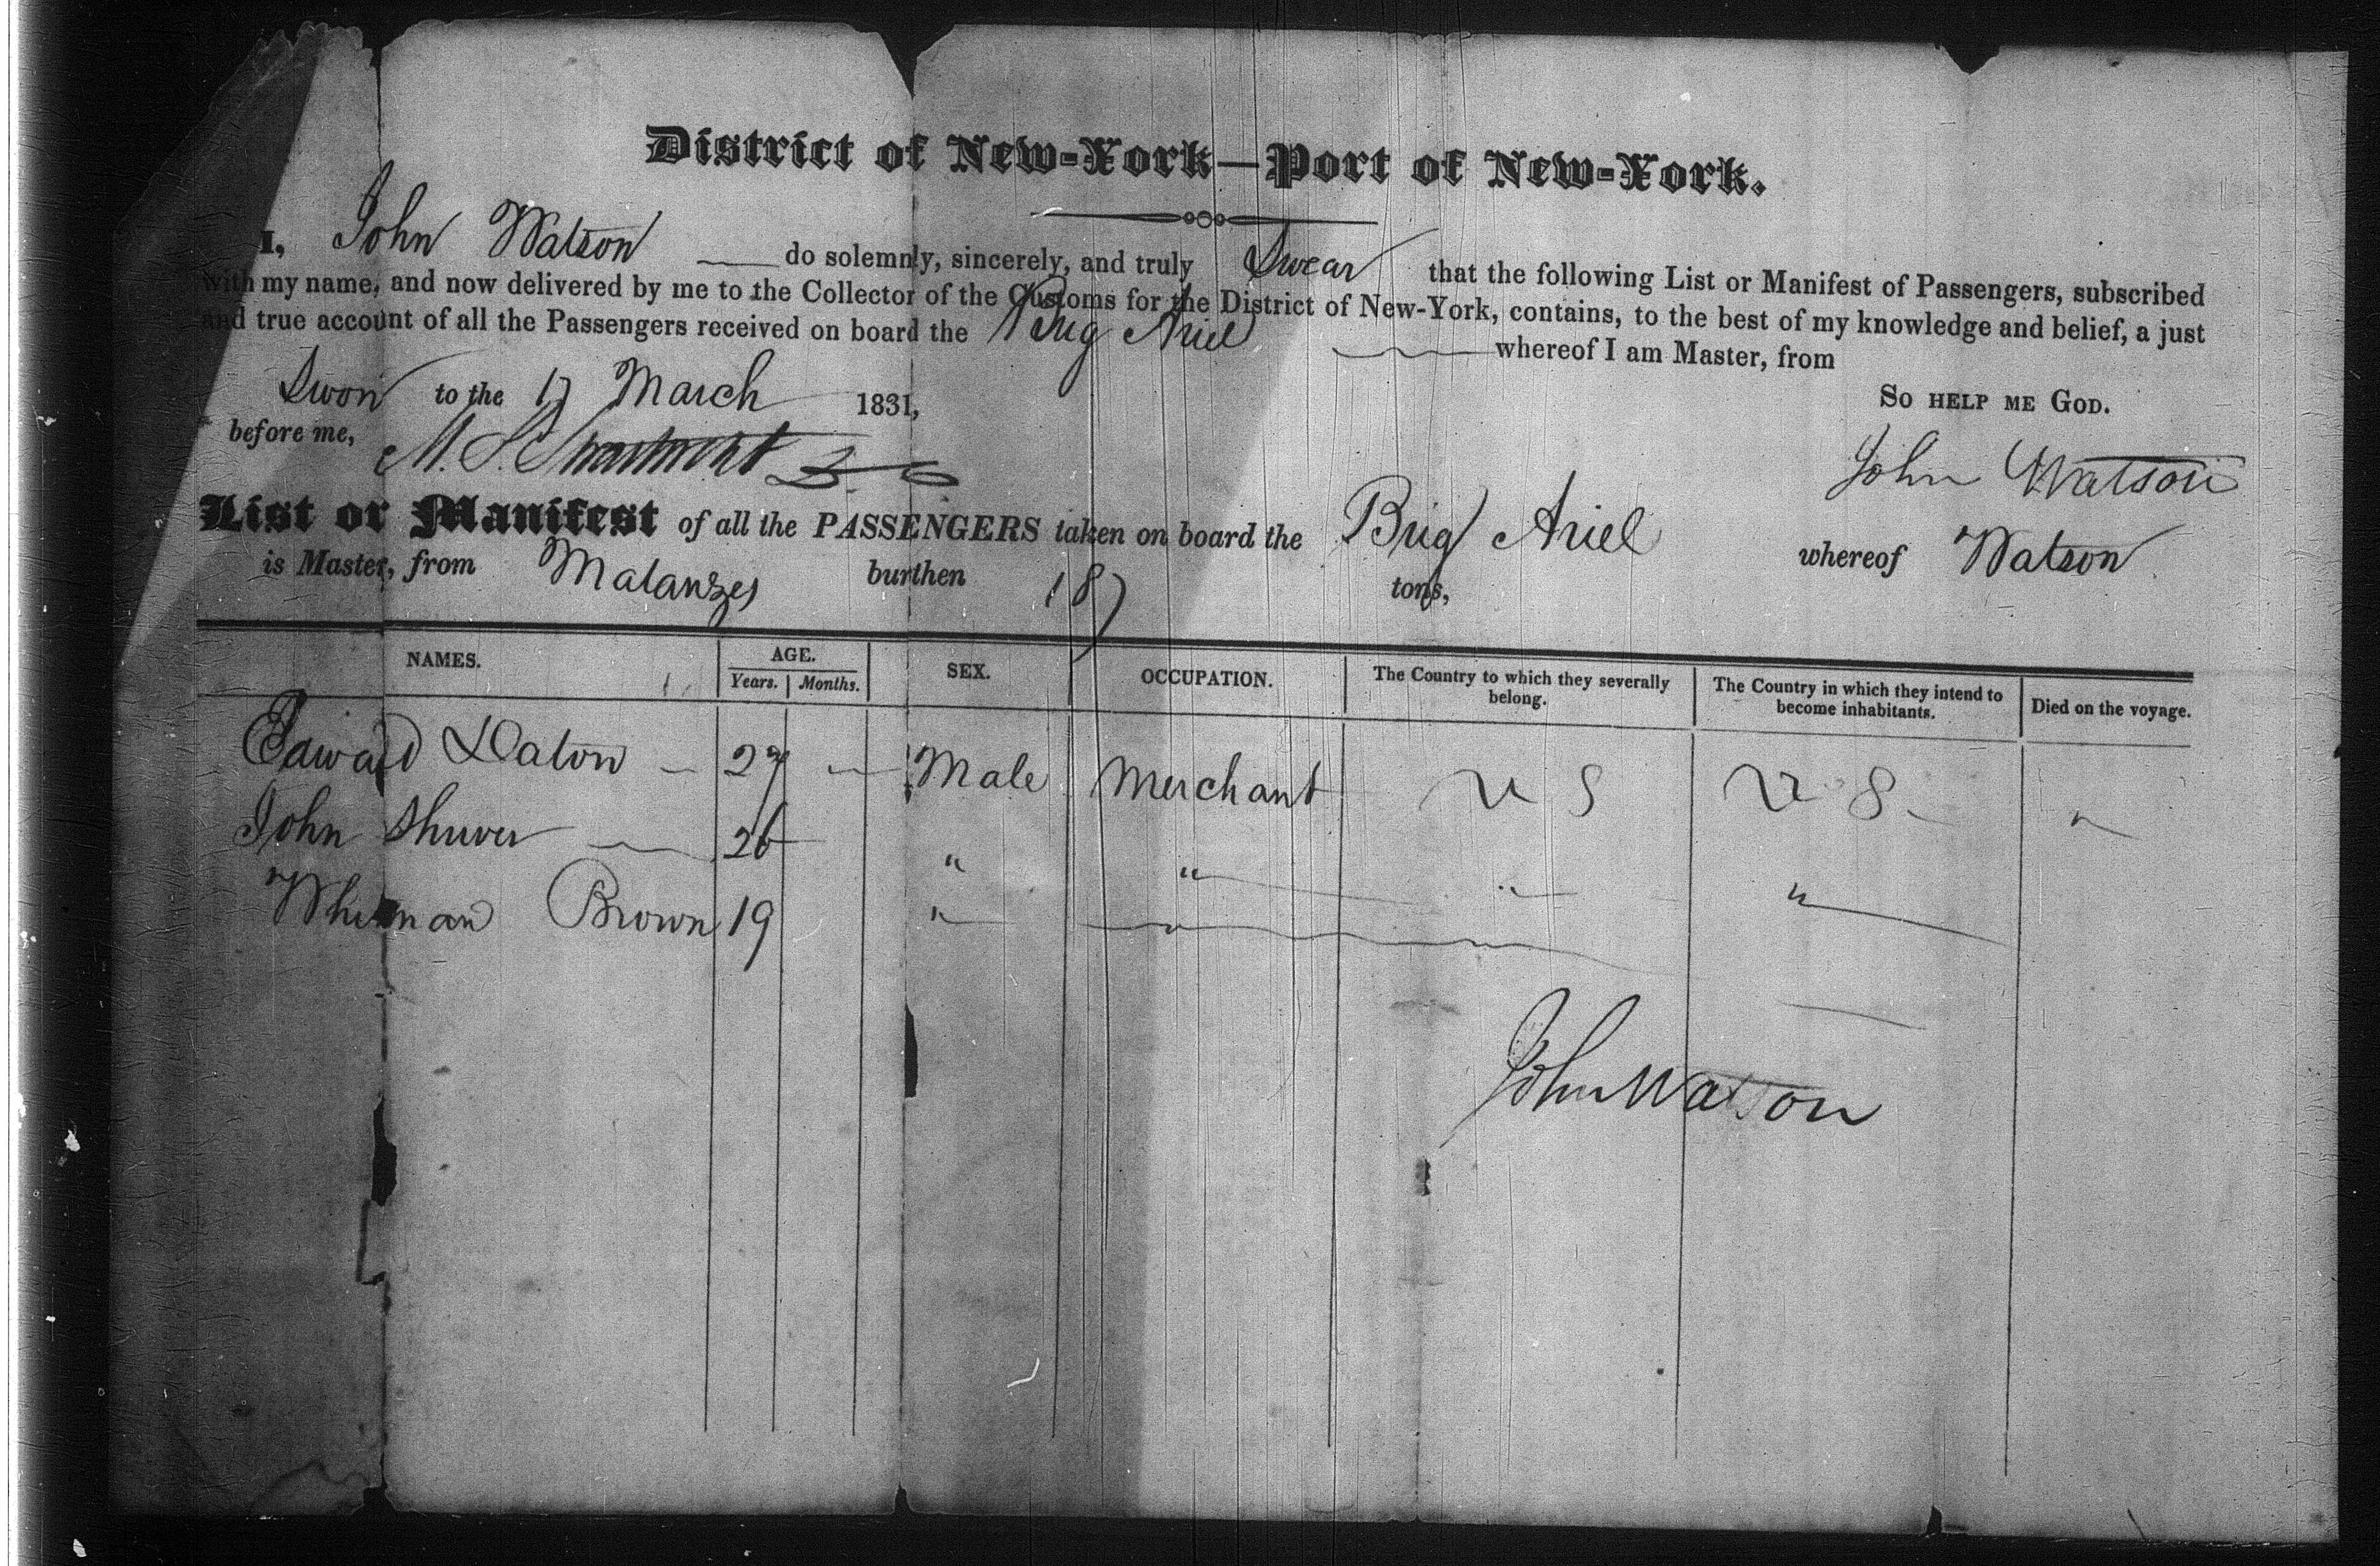 District of New-York—Port of New-York.
I, John Watson do solemnly, sincerely, and truly Swear that the following List or Manifest of Passengers, subscribed
with my name, and now delivered by me to the Collector of the Customs for the District of New-York, contains, to the best of my knowledge and belief, a just
and true account of all the Passengers received on board the Brig Ariel whereof I am Master, from
Swon to the 17 March 1831,
So help me God.
before me,
John Watson
List or Manifest of all the PASSENGERS taken on board the Brig Ariel whereof Watson
is Master, from Matanzes burthen 187 tons,
NAMES. AGE. SEX. OCCUPATION. The Country to which they severally belong. The Country in which they intend to become inhabitants. Died on the voyage.
Years. Months.
Edward 27 — Male Merchant U S U S - "
John 26 " " " "
Whitman Brown 19 "
John Watson